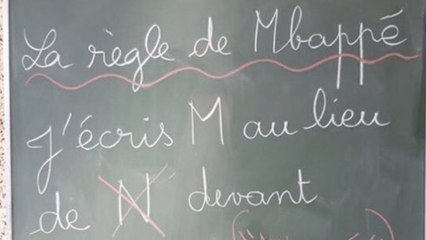 La règle de Mbappé
J'écris M au lieu
de N devant